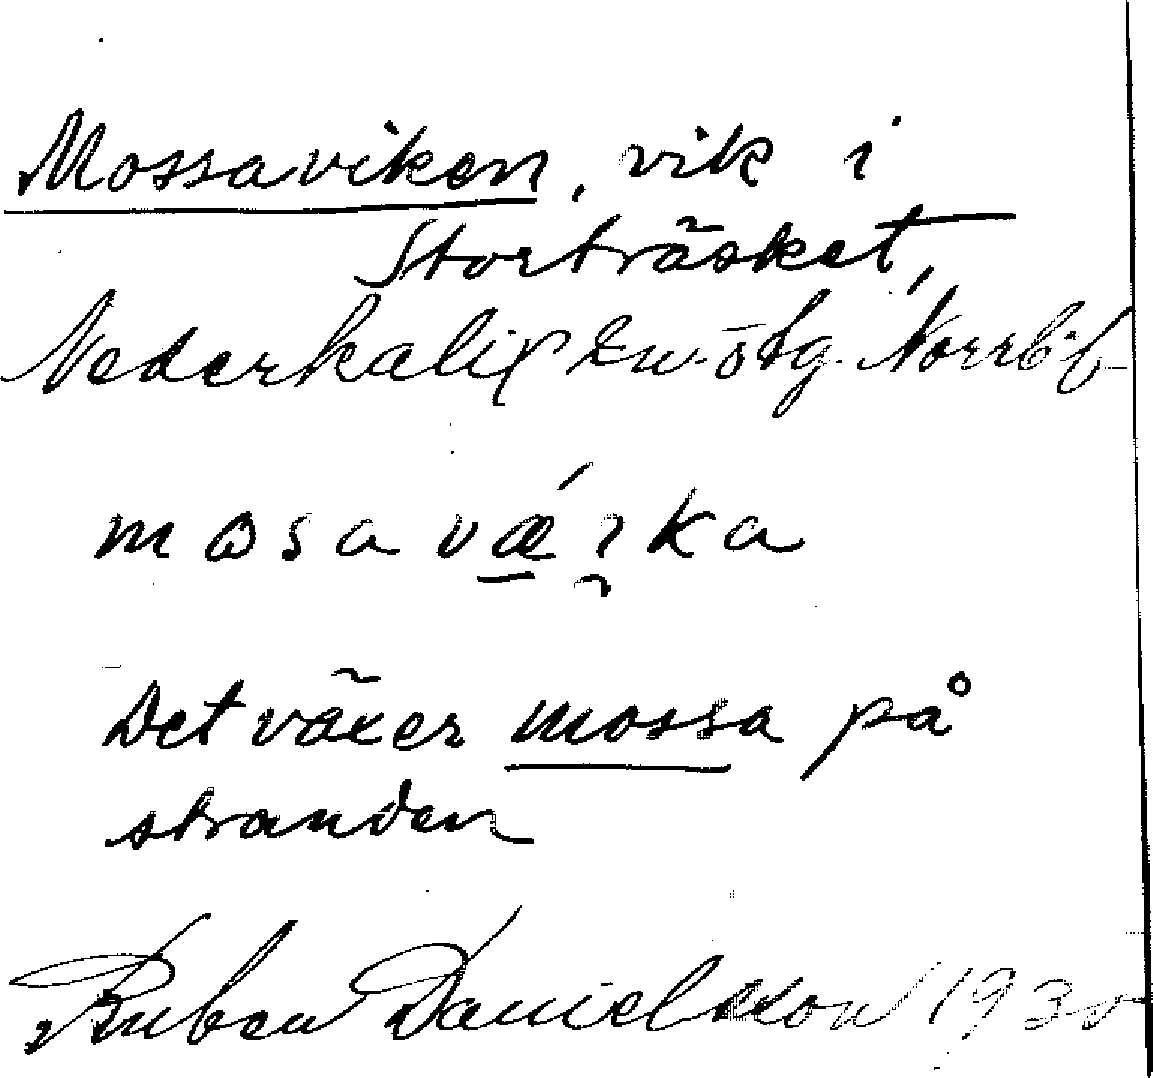 Mossaviken, vik i
Storträsket,
Nederkalix tu. ö tg. Norrb. f
mosavæıka
Det växer mossa på
stranden
Ruben Danielsson 1930